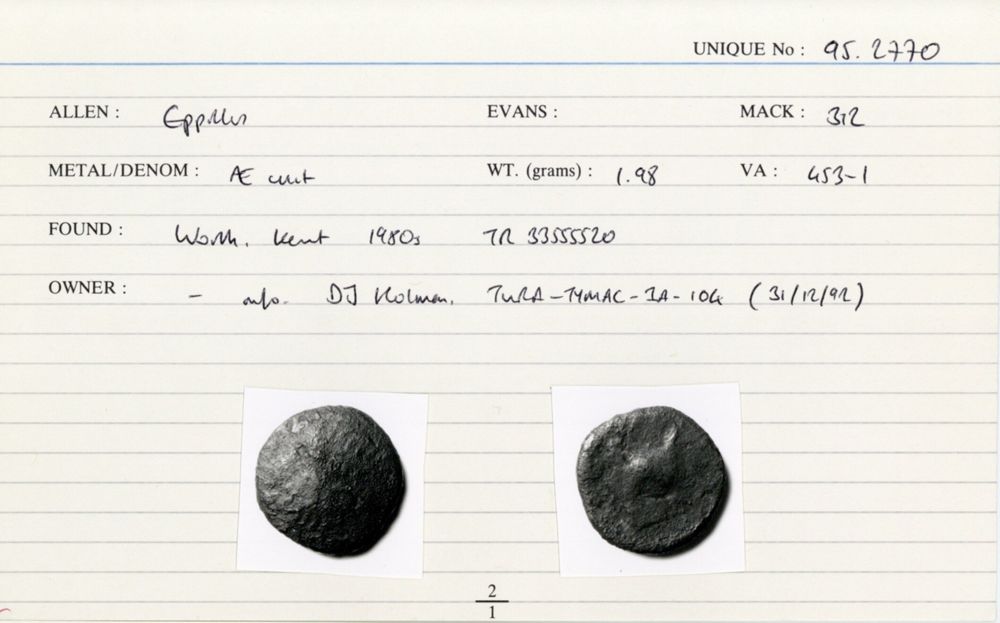 UNIQUE No : 95. 2770
ALLEN : Eppillus EVANS : MACK : 312
METAL/DENOM : Æ unit WT. (grams) : 1.98 VA : 453-1
FOUND : Worth, Kent 1980s TR 33555520
OWNER : - info. DJ Holman, (31/12/92)
2
1